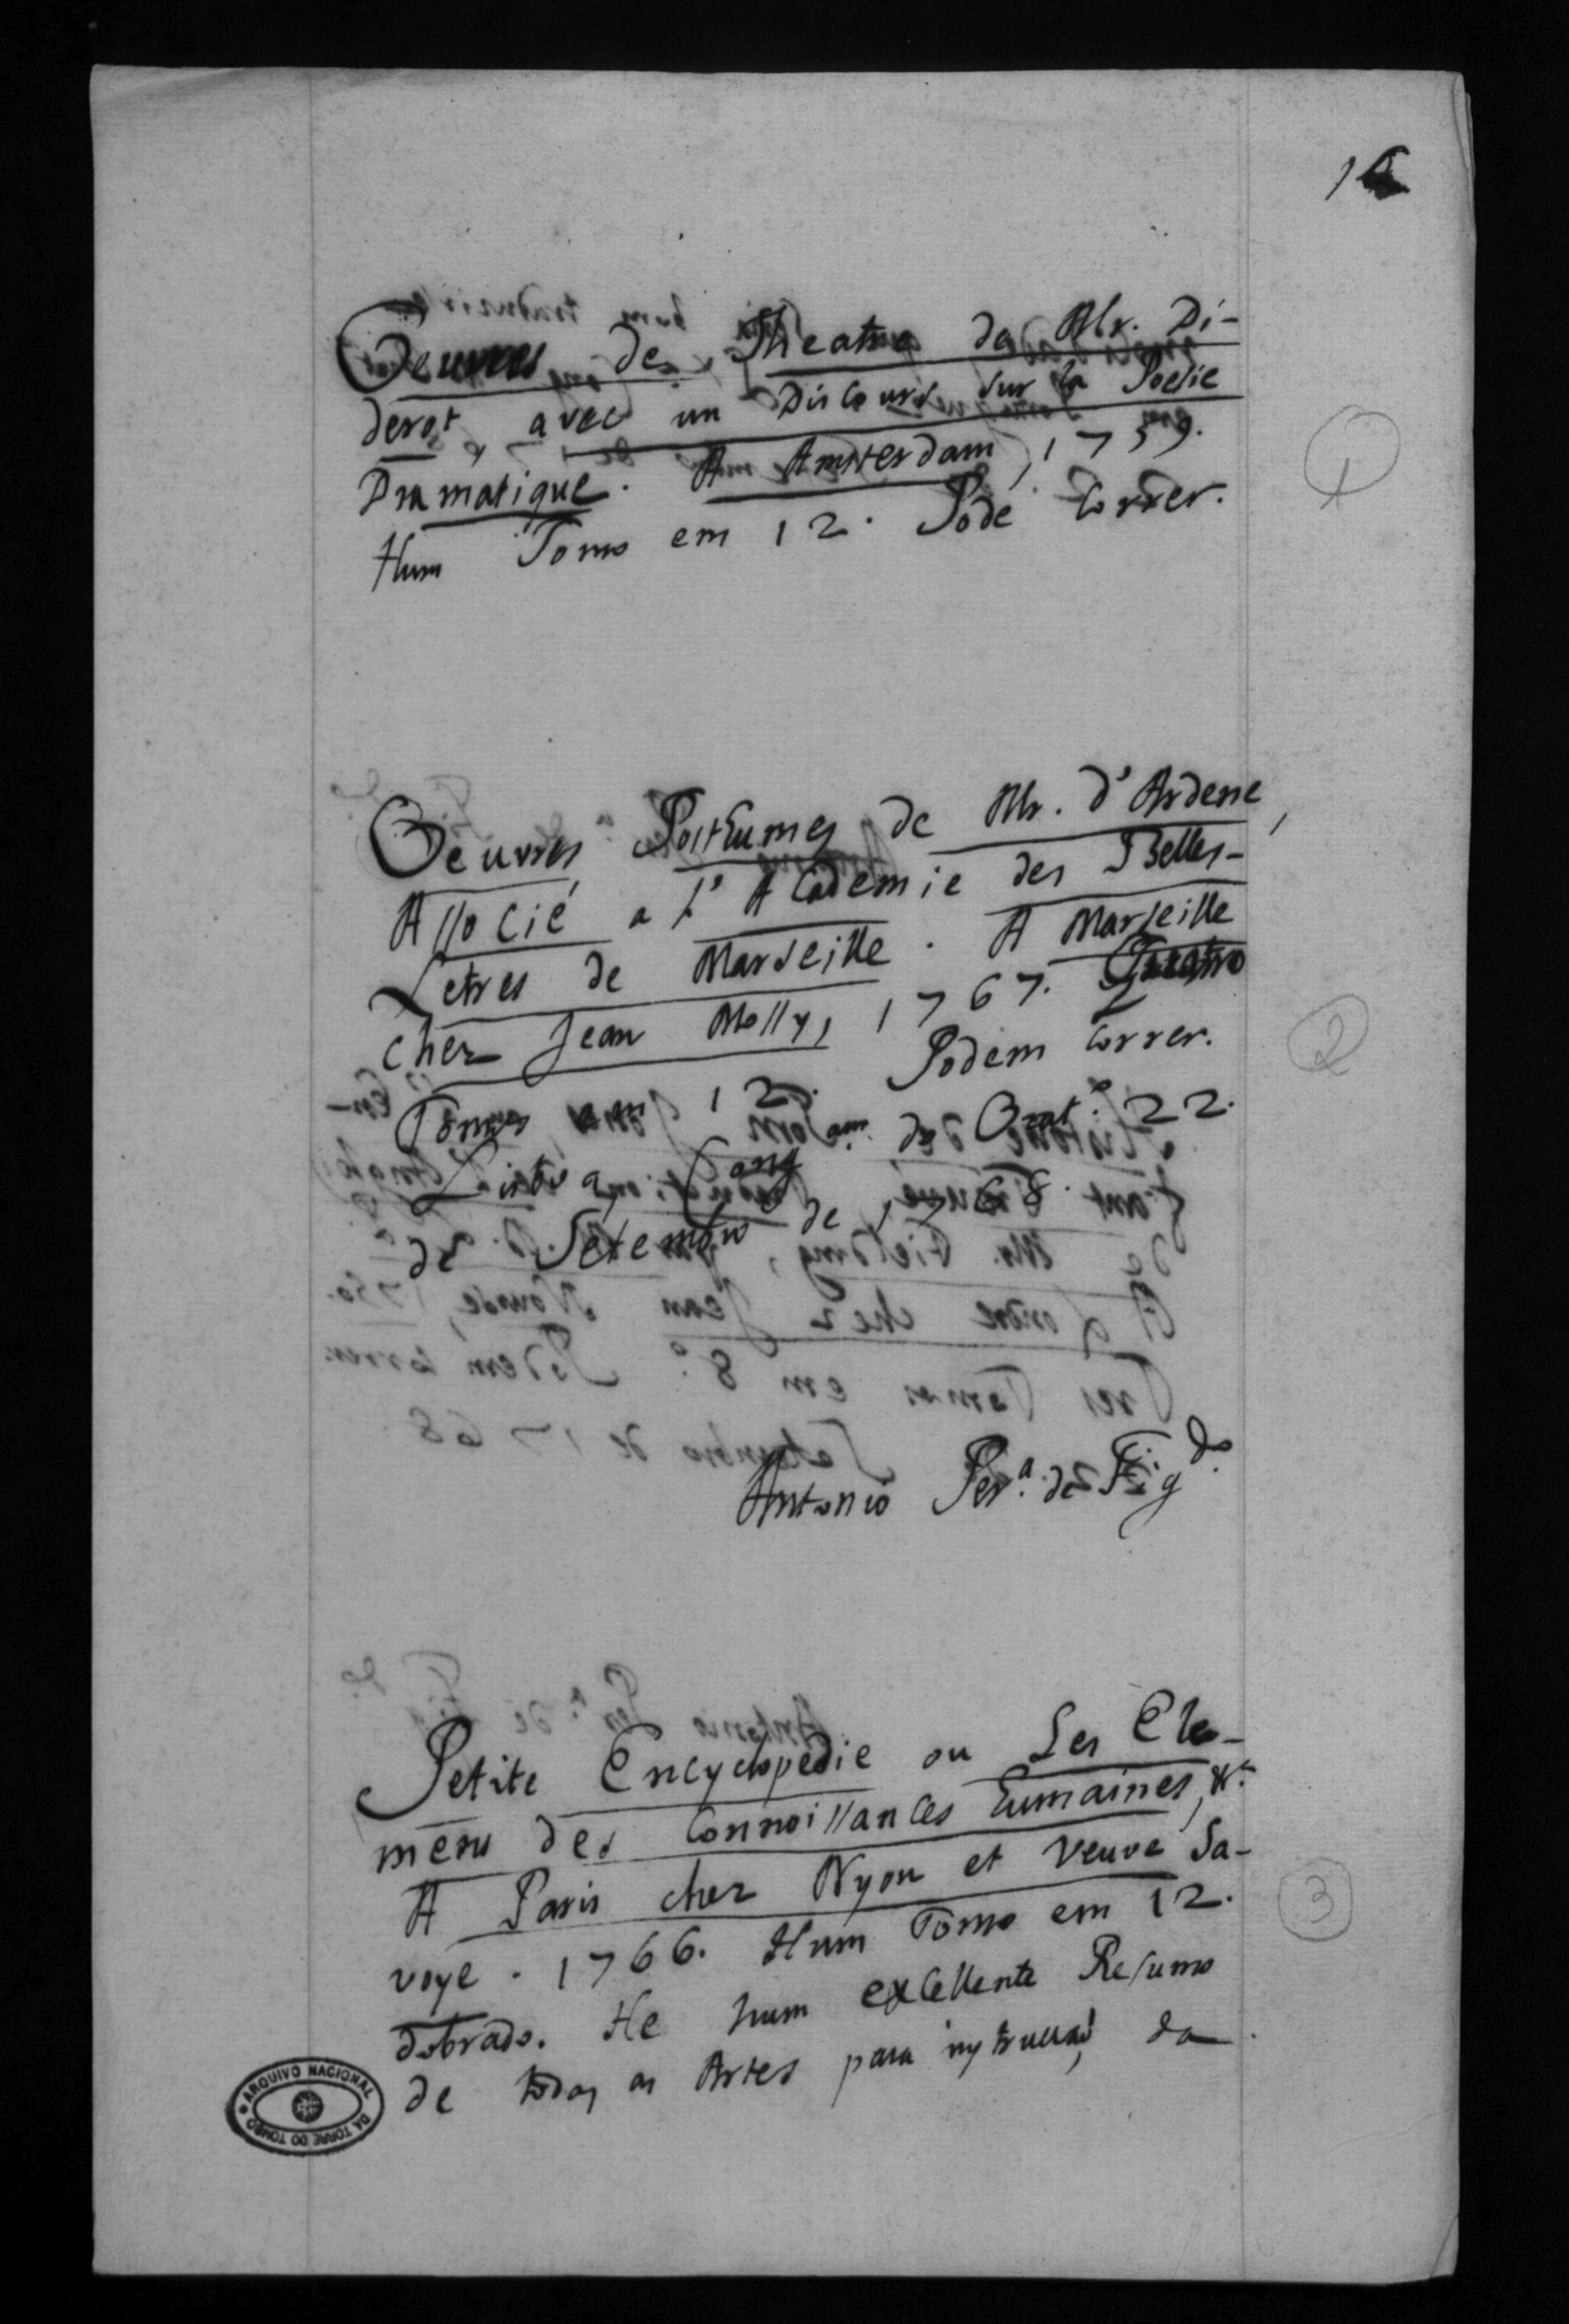 16
Oeuvres de Theatre de Mr. Di-
derot, avec un Discours sur la Poesie
Dramatique. A Amsterdam, 1759.
Hum Tomo em 12. Pode correr.
1
Oeuvres Posthumes de Mr. d'Ardene,
Associé a L'Academie des Belles-
Letres de Marseille. A Marseille
chez Jean Mossy, 1767. Quatro
Tomos em 12. Podem correr.
Lisboa, Congam. do Orat.º 22.
de Setembro de 1768.
2
Antonio Per.ª de Fig.do
Petite Encyclopedie ou Les Ele-
mens des Connoissances humaines, &.
A Paris chez Nyon et Veuve Sa-
voye. 1766. Hum Tomo em 12.
dobrado. He hum excellente Resumo
de todas as Artes para instrucçaõ da
3
ARQUIVO NACIONAL DA TORRE DO TOMBO